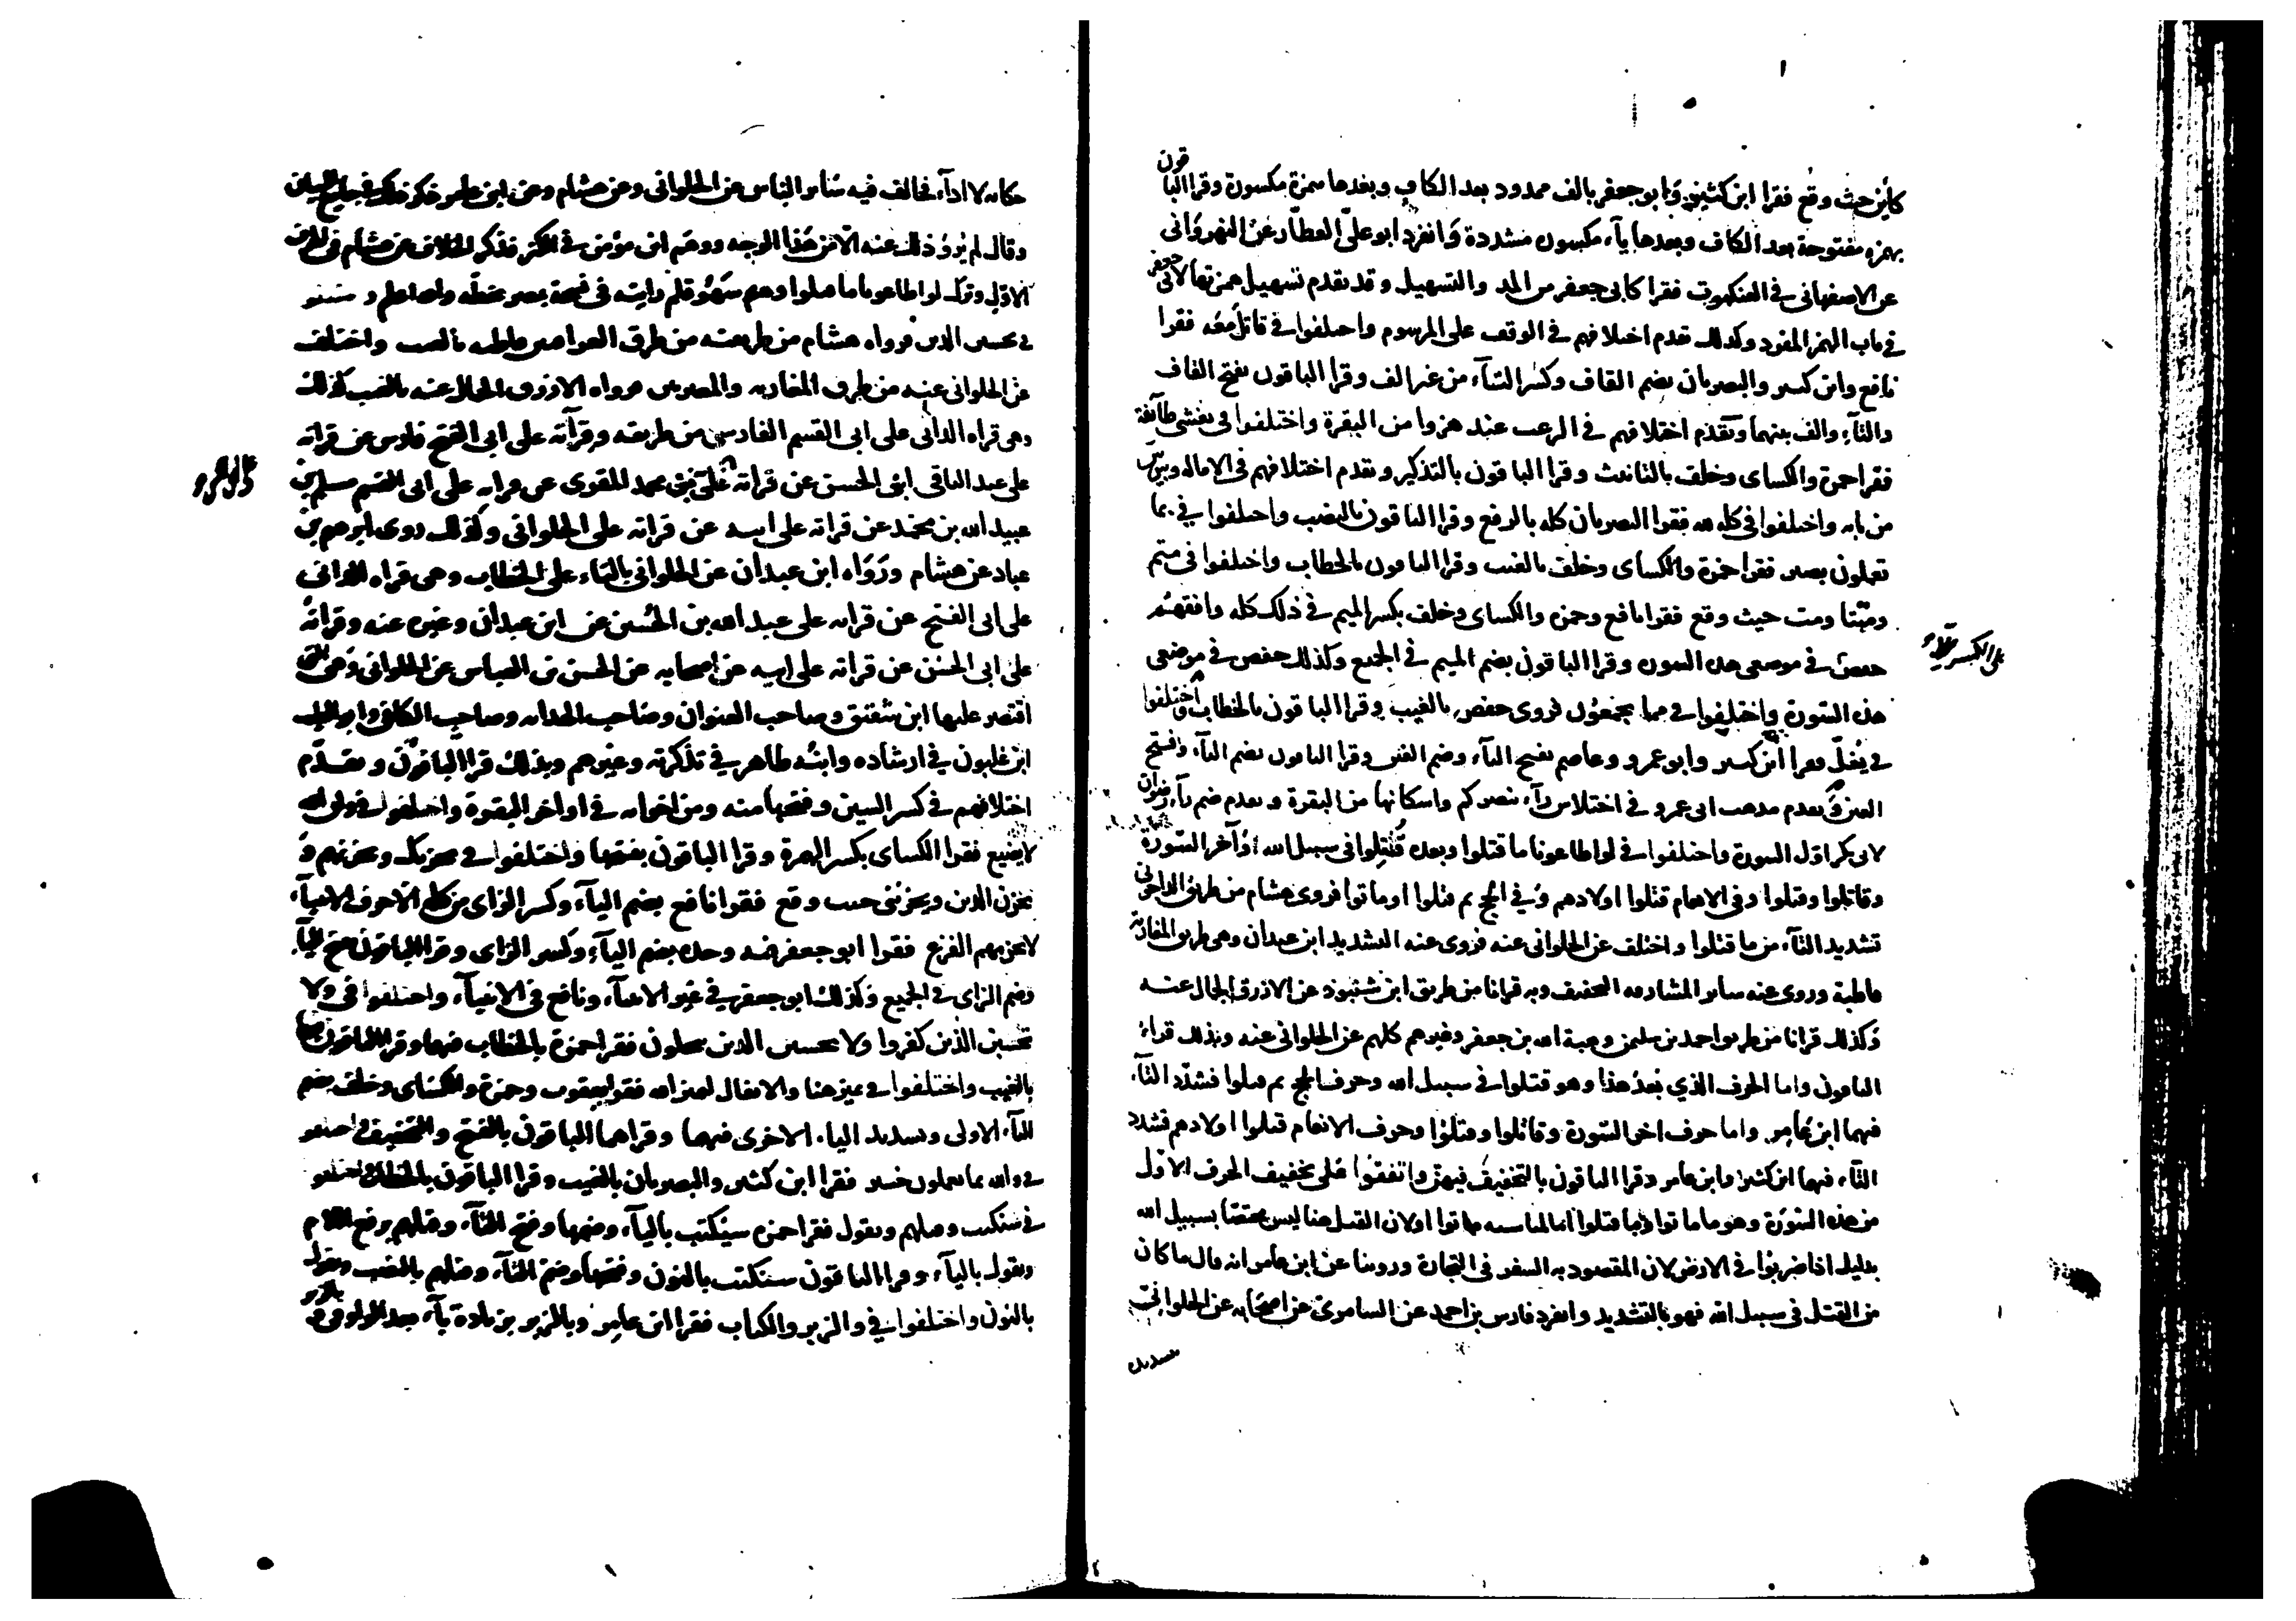 كأين حيث وقع فقرا ابن كثير وابو جعفر بالف ممدود بعد الكاف وبعدها همزة مكسورة وقرا الباقون
بهمزه مفتوحة بعد الكاف وبعدها ياء مكسورة مشددة وانفرد ابو علي العطار عن النهرواني
عن الاصفهاني في العنكبوت فقرا كابي جعفر من المد والتسهيل وقد تقدم تسهيل همزتها لابي جعفر
في باب الهمز المفرد وكذلك تقدم اختلافهم في الوقف على المرسوم واختلفوا في قاتل معه فقرا
نافع وابن كثير والبصريان بضم القاف وكسر التاء من غير الف وقرا الباقون بفتح القاف
والتاء والف بينهما وتقدم اختلافهم في الرعب عند هزوا من البقرة واختلفوا في يغشى طائفة
فقرا حمزة والكساى وخلف بالتانيث وقرا الباقون بالتذكير وتقدم اختلافهم في الاماله وبين بين
من بابه واختلفوا في كله لله فقرا البصريان كله بالرفع وقرا الباقون بالنصب واختلفوا في بما
تعملون بصير فقرا حمزة والكساى وخلف بالغيب وقرا الباقون بالخطاب واختلفوا في متم
ومتنا ومت حيث وقع فقرا نافع وحمزه والكساى وخلف بكسر الميم في ذلك كله وافقهم
على الكسر
حفص في موضعى هذه السورة وقرا الباقون بضم الميم في الجميع وكذلك حفص في موضعى
هذه السورة واختلفوا في مما يجمعون فروى حفص بالغيب وقرا الباقون بالخطاب واختلفوا
في يغل فقرا ابن كثير وابو عمرو وعاصم بفتح الياء وضم الغين وقرا الباقون بضم الياء وفتح
الغين وتقدم مذهب ابى عمرو في اختلاس راء ينصركم واسكانها من البقرة وتقدم ضم راء رضوان
لابي بكر اول السورة واختلفوا في لو اطاعونا ما قتلوا وبعده قتلوا في سبيل الله وآخر السورة
وقاتلوا وقتلوا وفي الانعام قتلوا اولادهم وفي الحج ثم قتلوا او ماتوا فروى هشام من طريق الداجوني
تشديد التاء من ما قتلوا واختلف عن الحلواني عنه فروى عنه التشديد ابن عبدان وهى طريق المغاربة
قاطبة وروى عنه سائر المشارقه التخفيف وبه قرانا من طريق ابن شنبوذ عن الازرق الجمال عنه
وكذلك قرانا من طريق احمد بن سليمن وهبة الله بن جعفر وغيرهم كلهم عن الحلواني عنه وبذلك قراء
الباقون واما الحرف الذي بعد هذا وهو قتلوا في سبيل الله وحرف الحج ثم قتلوا فشدد التاء
فيهما ابن عامر واما حرف اخر السورة وقاتلوا وقتلوا وحرف الانعام قتلوا اولادهم فشدد
التاء فيهما ابن كثير وابن عامر وقرا الباقون بالتخفيف فيهن واتفقوا على تخفيف الحرف الاول
من هذه السورة وهو ما ماتوا وما قتلوا اما لمناسبه ماتوا اولان القتل هنا ليس مختصا بسبيل الله
بدليل اذا ضربوا في الارض لان المقصود به السفر في التجارة وروينا عن ابن عامر انه قال ما كان
من القتل في سبيل الله فهو بالتشديد وانفرد فارس بن احمد عن السامري عن اصحابه عن الحلواني
بتشديده
حكاه لا اداء فخالف فيه سائر الناس عن الحلواني وعن هشام وعن ابن عامر ذكر ذلك في جامع البيان
وقال لم يرو ذلك عنه الا من هذا الوجه ووهم ابن مؤمن في الكنز فذكر الخلاف عن هشام في الحرف
الاول وترك لو اطاعونا ما قتلوا وهو سهو قلم رايته في نسخة بصر بخطه والله اعلم واختلفوا
في يحسبن الذين فرواه هشام من طريقيه من طرق العراقيين قاطبه بالغيب واختلف
عن الحلواني عنه من طرق المغاربه والمصريين فرواه الازرق الجمال عنه بالغيب كذلك
وهى قراه الداني على ابى القسم الفارسى من طريقه وقرأته على ابي الفتح فارس عن قراته
على عبد الباقي ابن الحسن عن قراته على محمد المقرى عن قراته على ابى القسم مسلم بن
عبيد الله بن محمد عن قراته على ابيه عن قراته على الحلواني وكذلك روى ابرهيم بن
عباد عن هشام ورواه ابن عبدان عن الحلواني بالتاء على الخطاب وهى قراه الداني
على ابى الفتح عن قراته على عبد الله بن الحسين عن ابن عبدان وغيره عنه وقراته
على ابي الحسن عن قراته على ابيه عن اصحابه عن الحسن بن العباس عن الحلواني وهى التى
اقتصر عليها ابن شفيق وصاحب العنوان وصاحب الهدايه وصاحب الكافى وابو الطيب
ابن غلبون في ارشاده وابنه طاهر في تذكرته وغيرهم وبذلك قرا الباقون وتقدم
اختلافهم في كسر السين وفتحها منه ومن اخواته في اواخر البقرة واختلفوا في وان الله
لا يضيع فقرا الكساى بكسر الهمزة وقرا الباقون بفتحها واختلفوا في يحزنك ويحزنهم و
يحزن الذين ويحزننى حيث وقع فقرا نافع بضم الياء وكسر الزاى من كله الا حرف الانبياء
لا يحزنهم الفزع فقرا ابو جعفر فيه وحده بضم الياء وكسر الزاى وقرا الباقون بفتح الياء
وضم الزاى في الجميع وكذلك ابو جعفر في غير الانبياء ونافع في الانبياء واختلفوا في ولا
تحسبن الذين كفروا ولا يحسبن الذين يبخلون فقرا حمزة بالخطاب فيهما وقرا الباقون فيهما
بالغيب واختلفوا في يميز هنا والانفال ليميز الله فقرا يعقوب وحمزة والكساى وخلف بضم
الياء الاولى وتشديد الياء الاخرى فيهما وقراهما الباقون بالفتح والتخفيف واختلفوا
في والله بما تعملون خبير فقرا ابن كثير والبصريان بالغيب وقرا الباقون بالخطاب واختلفوا
في سنكتب وقتلهم ونقول فقرا حمزه سيكتب بالياء وضمها وفتح التاء وقتلهم برفع اللام
ويقول بالياء وقرا الباقون سنكتب بالنون وفتحها وضم التاء وقتلهم بالنصب ونقول
بالنون واختلفوا في والزبر والكتاب فقرا ابن عامر وبالزبر بزيادة باء بعد الواو